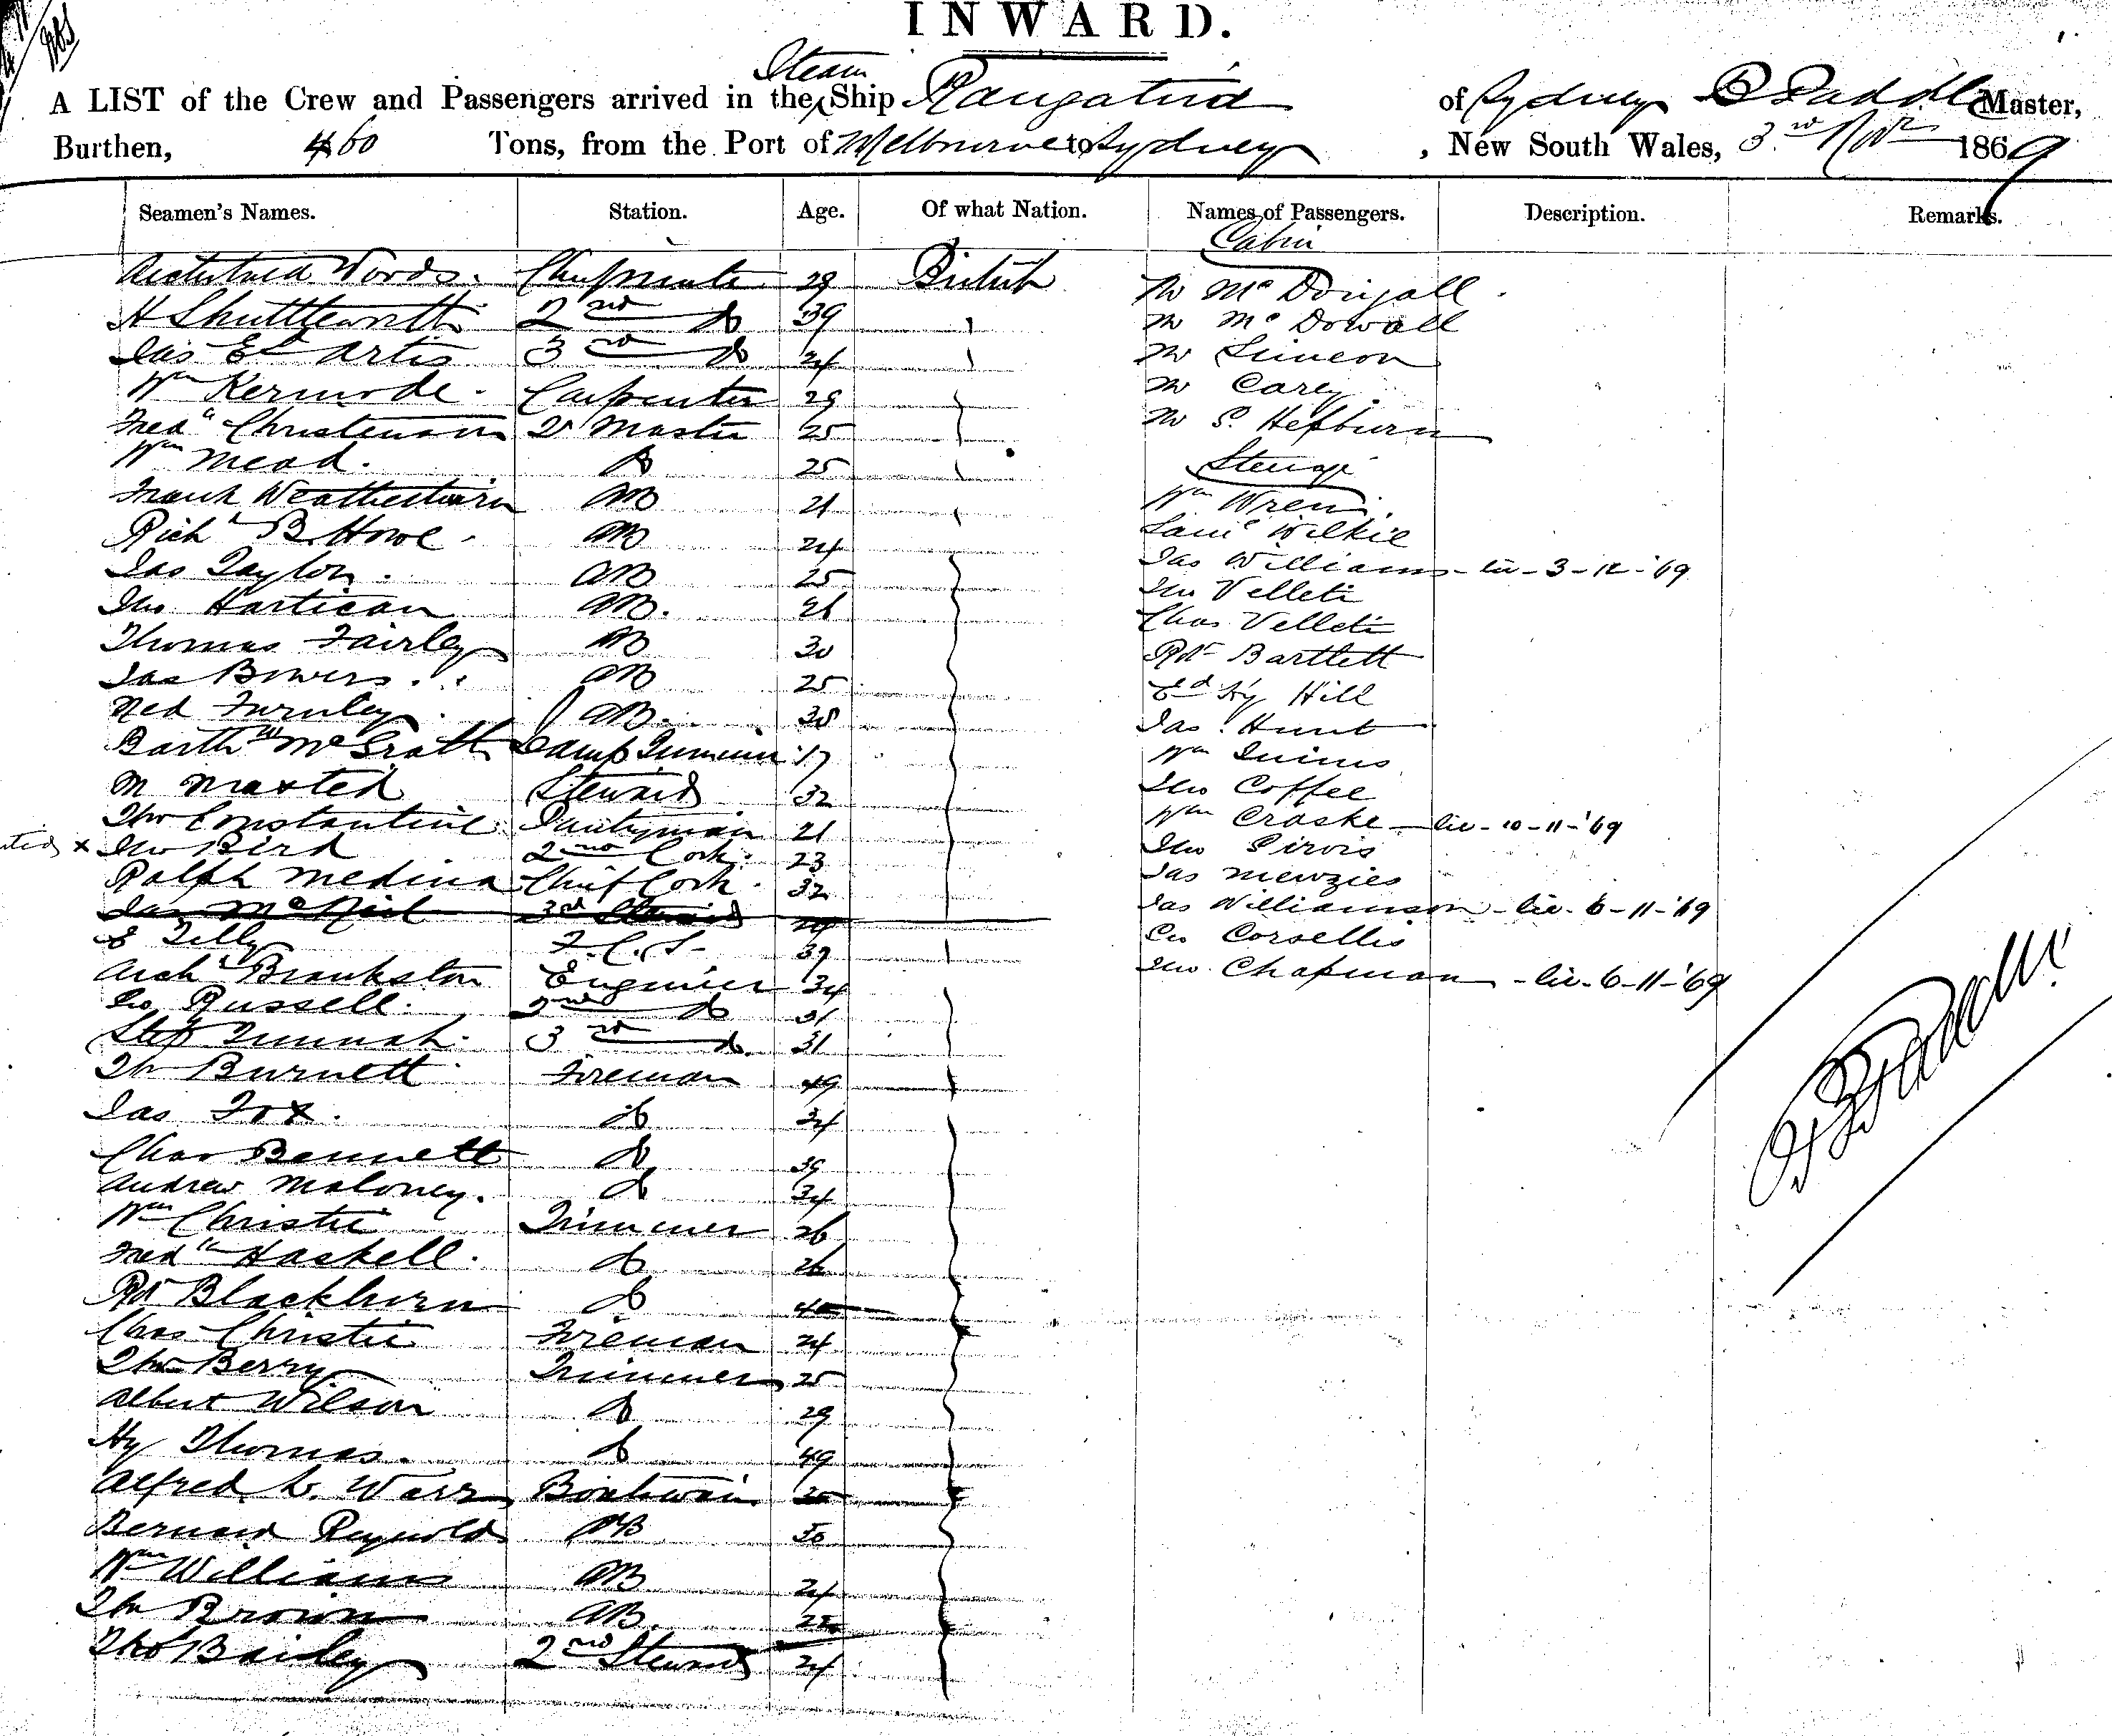 INWARD.
A LIST of the Crew and Passengers arrived in the Steam Ship Rangatira of Sydney Master,
Burthen, 460 Tons, from the Port of Melbourne to Sydney, New South Wales, 3rd Novr 1869
Seamen's Names. Station. Age. Of what Nation. Names of Passengers. Description. Remarks.
Cabin
Woods. 29 British Mr McDougall
H Shuttleworth 2nd do 39 Mr McDowall
Jas Ed Artis 3rd do 24 Mr Simeon
Wm Kermode Carpenter 29 Mr Carey
Christenson Master 25 Mr S. Hepburn
Wm Mead. do 25 Steerage
Frank AB 21 Wm Wren
Richd B. Howe AB 24 Wilkie
Jas Taylor AB 25 Jas Williams - lic - 3-12-'69
Jno Hartican AB. Jno
Thomas Fairley AB 30 Chas
Jas Bowers AB 25 Rbt Bartlett
Ned AB Ed Hy Hill
McGrath Lamp Trimmer 17 Jas Hunt
M Maxted Steward 32 Wm
Constantine Pantryman 21 Jno Coffee
Jno Bird 2nd Cook 23 Wm Craske - lic - 10-11-'69
Ralph Medina Chief Cook 32 Jno
Jas McNeil 3rd Steward Jas Menzies
E Tilly F.C.S. 39 Jas Williamson - lic - 6-11-'69
Archd Brankston Engineer 34 Geo Corsellis
Geo Russell 2nd do 31 Jno Chapman - lic - 6-11-'69
3rd do 31
Burnett Fireman 49
Jas Fox. do 34
Chas Bennett do 39
Andrew Maloney. do 34
Wm Christie Trimmer 26
Fredk Haskell do 26
Rbt Blackburn do 40
Chas Christie Fireman 24
Berry Trimmer 25
Albert Wilson do 29
Hy Thomas do 49
Alfred Boatswain
Bernard Reynolds AB 30
Wm Williams AB 24
Brown AB 22
Thos Bailey 2nd Steward 24